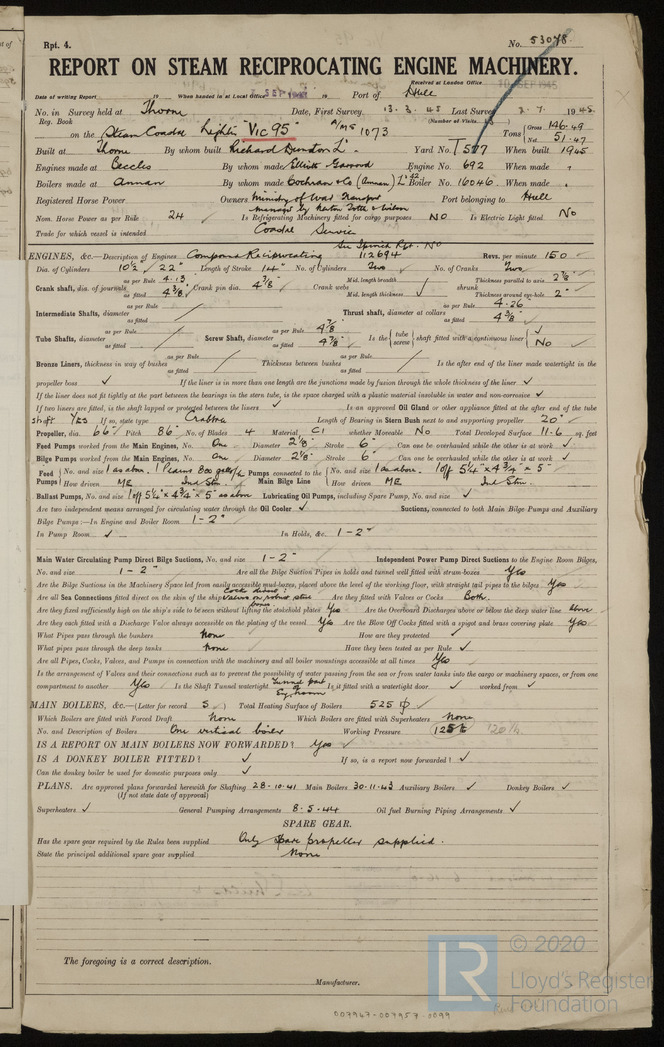 Rpt. 4.
No. 53078.
REPORT ON STEAM RECIPROCATING ENGINE MACHINERY.
Received at London Office 10 SEP 1945
Date of writing Report 19 When handed in at Local Office SEP 19 Port of Hull
No. in Survey held at Thorne Date, First Survey 13.3.45 Last Survey 2.7.1945
Reg. Book (Number of Visits )
on the Steam Coastal Lighter "Vic 95" 1073 Tons { Gross 146.49 Net 51.47
Built at Thorne By whom built Richard Dunston Ld. Yard No. T577 When built 1945
Engines made at Beccles By whom made Elliott Garrood Engine No. 692 When made "
Boilers made at Annan By whom made Cochran & Co (Annan) Ld Boiler No. 16046 When made "
Registered Horse Power Owners Ministry of War Transport Port belonging to Hull
Nom. Horse Power as per Rule 24 Is Refrigerating Machinery fitted for cargo purposes No Is Electric Light fitted No
Trade for which vessel is intended Coastal Service
See Ipswich Rpt. No
ENGINES, &c.—Description of Engines Compound Reciprocating 112694 Revs. per minute 150
Dia. of Cylinders 10½" 22" Length of Stroke 14" No. of Cylinders Two No. of Cranks Two
Crank shaft, dia. of journals as per Rule 4.13 as fitted 4 3/8" Crank pin dia. 4 3/8" Crank webs Mid. length breadth Mid. length thickness shrunk Thickness parallel to axis 2 7/8" Thickness around eye-hole 2"
Intermediate Shafts, diameter as per Rule as fitted Thrust shaft, diameter at collars as per Rule 4.26 as fitted 4 3/8"
Tube Shafts, diameter as per Rule as fitted Screw Shaft, diameter as per Rule as fitted 4 7/8" Is the { tube screw } shaft fitted with a continuous liner { No
Bronze Liners, thickness in way of bushes as per Rule as fitted Thickness between bushes as per Rule as fitted Is the after end of the liner made watertight in the
propeller boss ✓ If the liner is in more than one length are the junctions made by fusion through the whole thickness of the liner ✓
If the liner does not fit tightly at the part between the bearings in the stern tube, is the space charged with a plastic material insoluble in water and non-corrosive ✓
If two liners are fitted, is the shaft lapped or protected between the liners ✓ Is an approved Oil Gland or other appliance fitted at the after end of the tube
shaft Yes If so, state type Crabtree Length of Bearing in Stern Bush next to and supporting propeller 20"
Propeller, dia. 66" Pitch 86" No. of Blades 4 Material CI whether Moveable No Total Developed Surface 11.6 sq. feet
Feed Pumps worked from the Main Engines, No. One Diameter 2 1/8" Stroke 6" Can one be overhauled while the other is at work ✓
Bilge Pumps worked from the Main Engines, No. One Diameter 2 1/8" Stroke 6" Can one be overhauled while the other is at work ✓
Feed Pumps { No. and size 1 as above. How driven ME Ind Stm. Pumps connected to the Main Bilge Line { No. and size 1 as above. 1 off 5¼" x 4¾" x 5" How driven ME Ind Stm.
Ballast Pumps, No. and size 1 off 5¼" x 4¾" x 5" as above Lubricating Oil Pumps, including Spare Pump, No. and size ✓
Are two independent means arranged for circulating water through the Oil Cooler ✓ Suctions, connected to both Main Bilge Pumps and Auxiliary
Bilge Pumps:—In Engine and Boiler Room 1 - 2"
In Pump Room ✓ In Holds, &c. 1 - 2"
Main Water Circulating Pump Direct Bilge Suctions, No. and size 1 - 2" Independent Power Pump Direct Suctions to the Engine Room Bilges,
No. and size 1 - 2" Are all the Bilge Suction Pipes in holds and tunnel well fitted with strum-boxes Yes
Are the Bilge Suctions in the Machinery Space led from easily accessible mud-boxes, placed above the level of the working floor, with straight tail pipes to the bilges Yes
Are all Sea Connections fitted direct on the skin of the ship Are they fitted with Valves or Cocks Both.
Are they fixed sufficiently high on the ship's side to be seen without lifting the stokehold plates Yes Are the Overboard Discharges above or below the deep water line above
Are they each fitted with a Discharge Valve always accessible on the plating of the vessel Yes Are the Blow Off Cocks fitted with a spigot and brass covering plate Yes
What Pipes pass through the bunkers None How are they protected ✓
What pipes pass through the deep tanks None Have they been tested as per Rule ✓
Are all Pipes, Cocks, Valves, and Pumps in connection with the machinery and all boiler mountings accessible at all times Yes
Is the arrangement of Valves and their connections such as to prevent the possibility of water passing from the sea or from water tanks into the cargo or machinery spaces, or from one
compartment to another Yes Is the Shaft Tunnel watertight Tunnel part Eng. room Is it fitted with a watertight door ✓ worked from ✓
MAIN BOILERS, &c.—(Letter for record S) Total Heating Surface of Boilers 525
Which Boilers are fitted with Forced Draft None Which Boilers are fitted with Superheaters None
No. and Description of Boilers One vertical boiler Working Pressure 125 120 lb
IS A REPORT ON MAIN BOILERS NOW FORWARDED? Yes
IS A DONKEY BOILER FITTED? ✓ If so, is a report now forwarded? ✓
Can the donkey boiler be used for domestic purposes only ✓
PLANS. Are approved plans forwarded herewith for Shafting 28.10.41 Main Boilers 30.11.43 Auxiliary Boilers ✓ Donkey Boilers ✓
(If not state date of approval)
Superheaters ✓ General Pumping Arrangements 8.5.44 Oil fuel Burning Piping Arrangements ✓
SPARE GEAR.
Has the spare gear required by the Rules been supplied Only spare propeller supplied.
State the principal additional spare gear supplied None
The foregoing is a correct description.
Manufacturer.
LR © 2020
Lloyd's Register
Foundation
007947-007957-0099